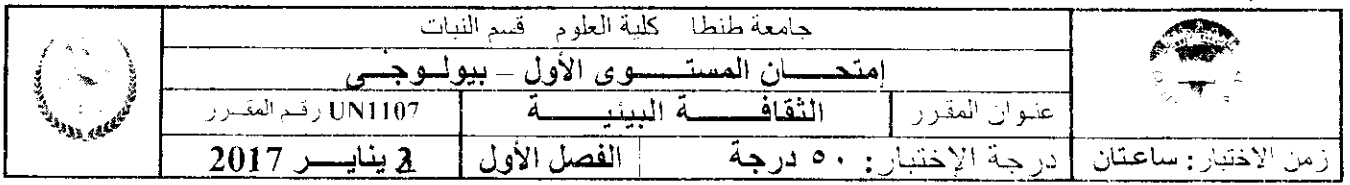 جامعة طنطا كلية العلوم قسم النبات
إمتحان المستوى الأول – بيولوجى
عنوان المقرر الثقافة البيئية UN1107 رقم المقرر
زمن الاختبار: ساعتان درجة الإختبار: ٥٠ درجة الفصل الأول 2 يناير 2017